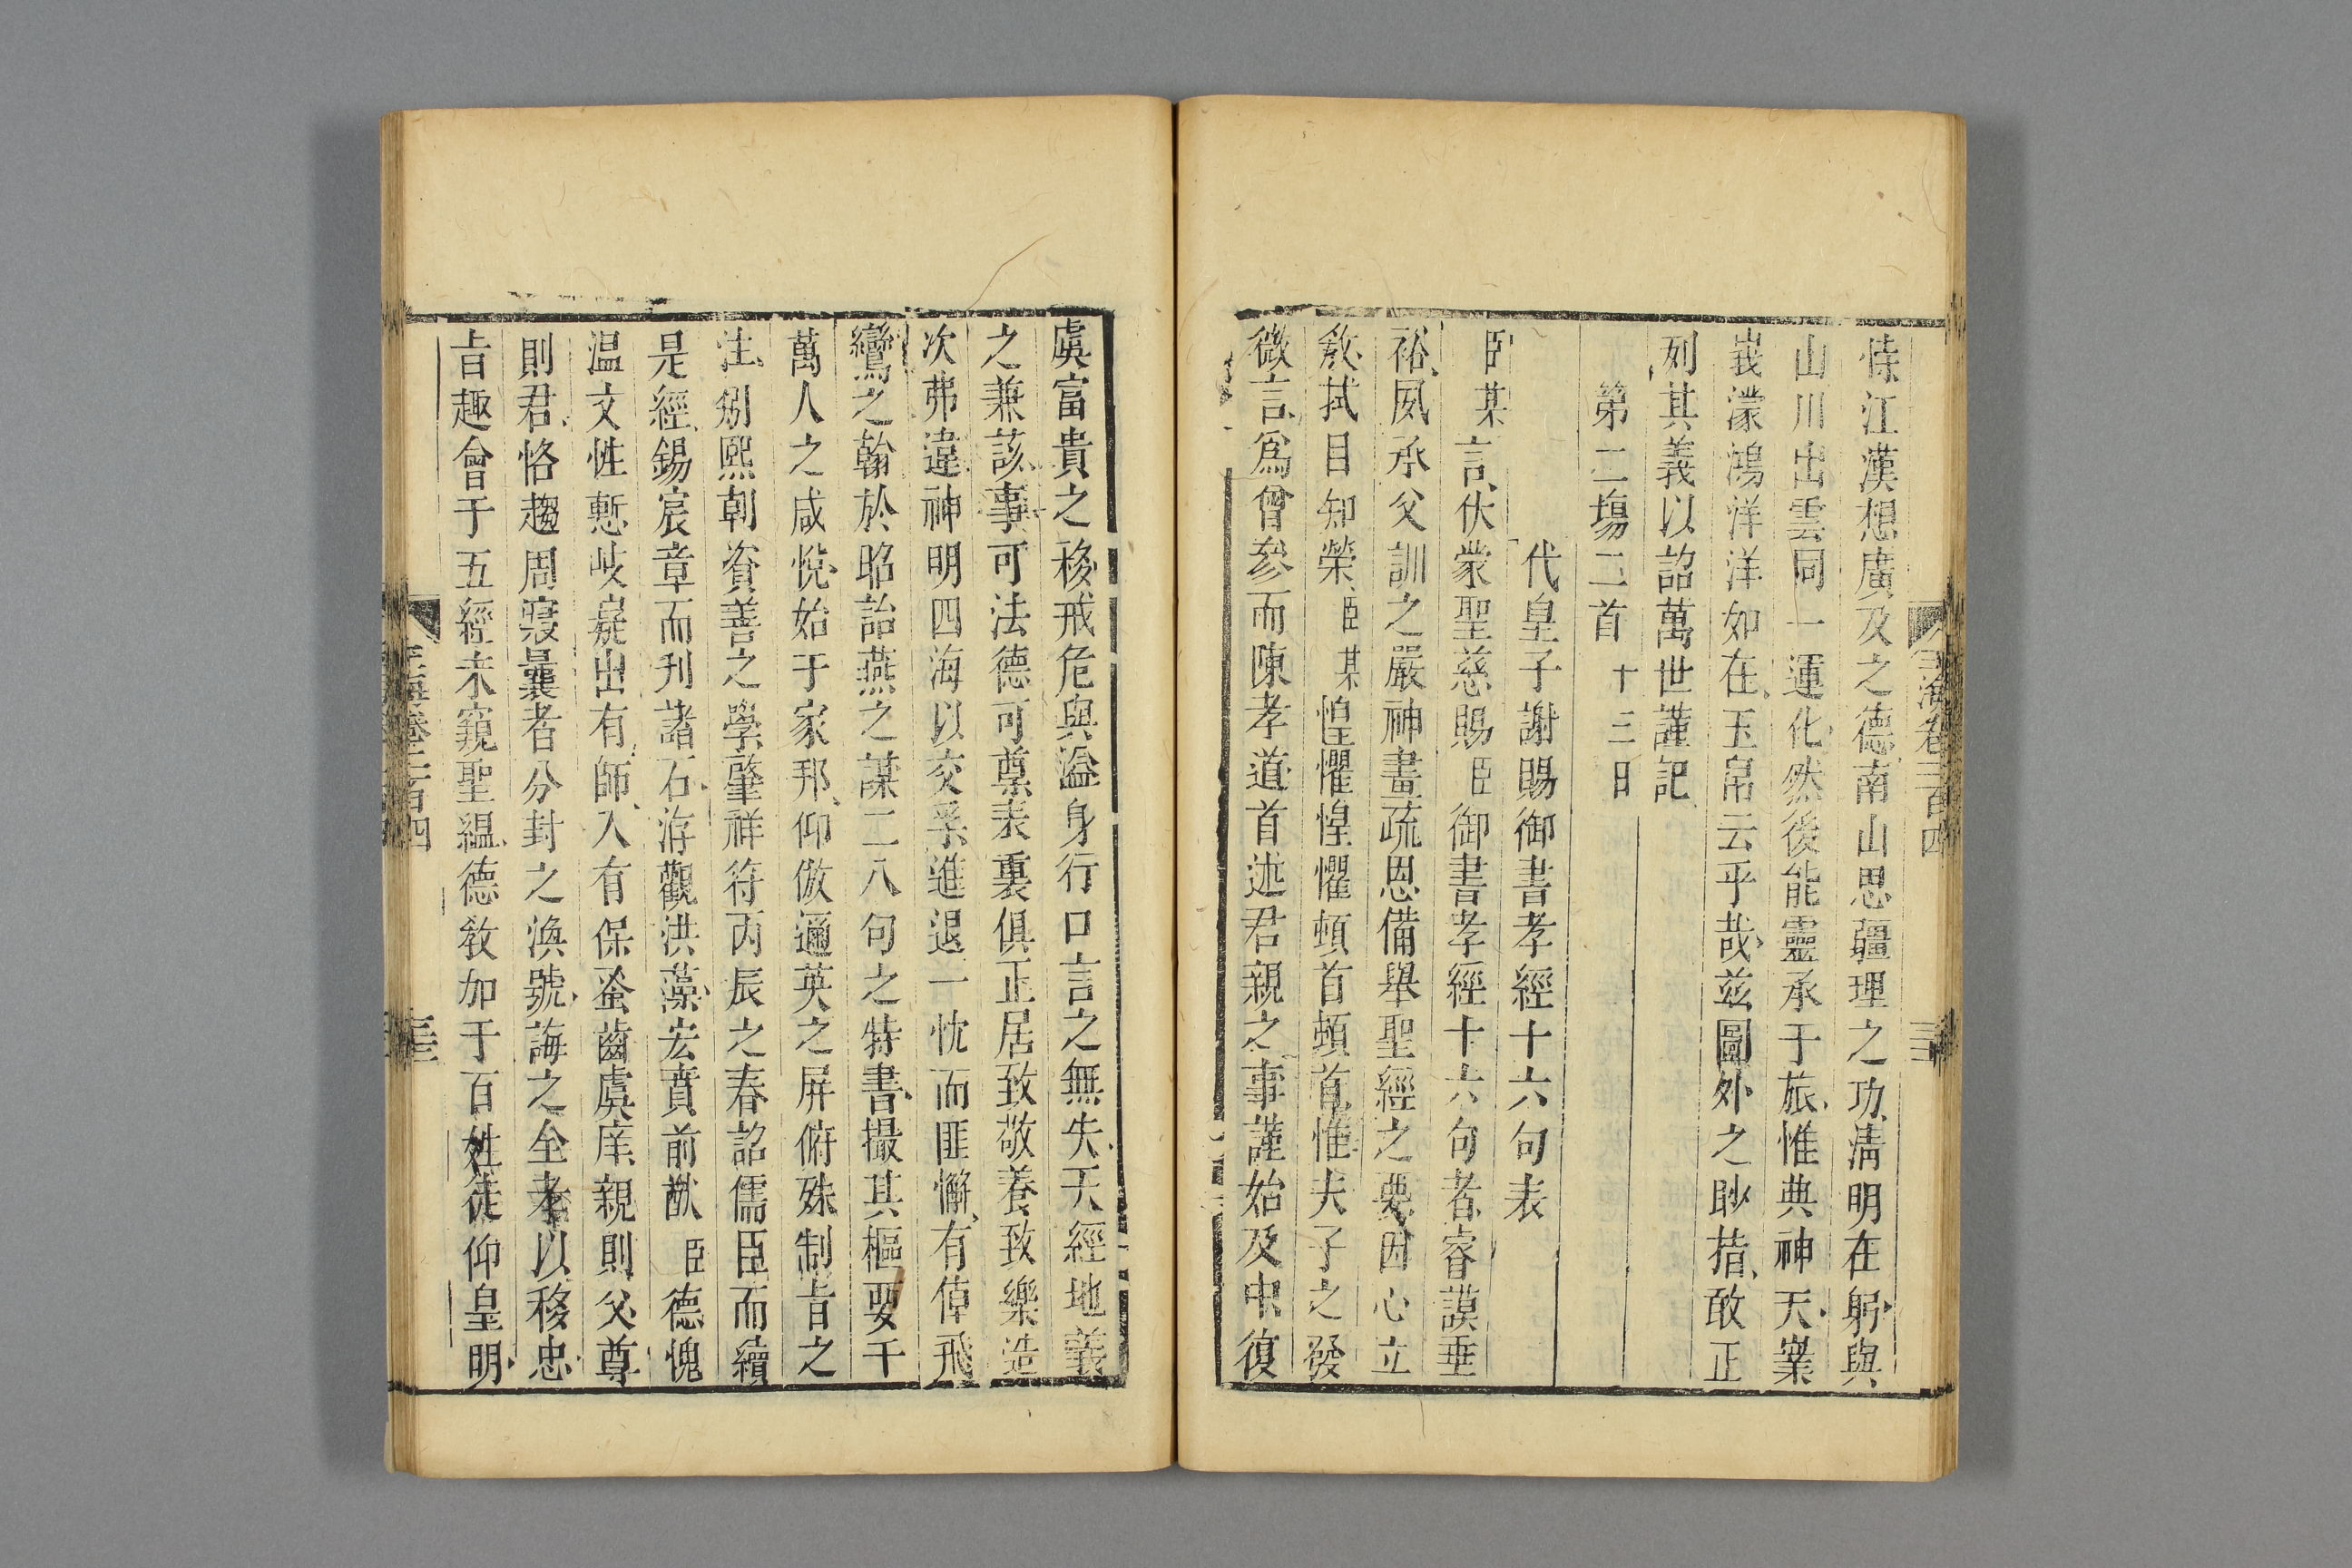 恃江漢想廣及之德南山思疆理之功淸明在躬與
山川出雲同一運化然後能靈承于旅惟典神天業
峩濛鴻洋洋如在玉帛云乎哉兹圖外之眇指敢正
列其義以詔萬世謹記
第二場二首 十三日
代皇子謝賜御書孝經十六句表
臣某言伏蒙聖慈賜臣御書孝經十六句者睿謨垂
裕風承父訓之嚴神畫疏恩備舉聖經之要因心立
敎拭目知榮臣某惶懼惶懼頓首頓首惟夫子之發
微言爲曾參而陳孝道首述君親之事謹始及中復
虞富貴之移戒危與溢身行口言之無失天經地義
之兼該事可法德可尊表裏俱正居致敬養致樂造
次弗違神明四海以交孚進退一忱而匪懈有倬飛
鸞之翰於昭詒燕之謀二八句之特書撮其樞要千
萬人之咸悅始于家邦仰倣邇英之屏俯殊制旨之
注矧熙朝資善之學肇祥符丙辰之春詔儒臣而續
是經錫宸章而刊諸石游觀洪藻宏賁前猷臣德愧
温文性慙岐嶷出有師入有保蚤齒虞庠親則父尊
則君恪趨周寢曩者分封之渙號誨之全孝以移忠
旨趣會于五經未窺聖緼德敎加于百姓徒仰皇明
玉海卷二百四